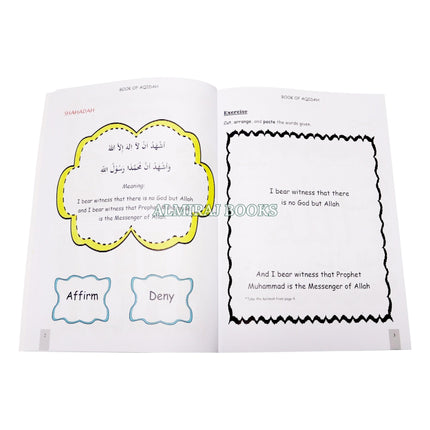 BOOK OF AQIDAH
SHAHADAH
اَشْهَدُ اَنْ لَا اِلٰهَ اِلَّا اللهُ
وَاَشْهَدُ اَنَّ مُحَمَّدًا رَسُوْلُ اللهِ
Meaning:
I bear witness that there is no God but Allah
and I bear witness that Prophet
is the Messenger of Allah.
Affirm
Deny
2
BOOK OF AQIDAH
Exercise
Cut, arrange, and paste the words given.
I bear witness that there
is no God but Allah
And I bear witness that Prophet
Muhammad is the Messenger of Allah
3
ALMIRAJ BOOKS